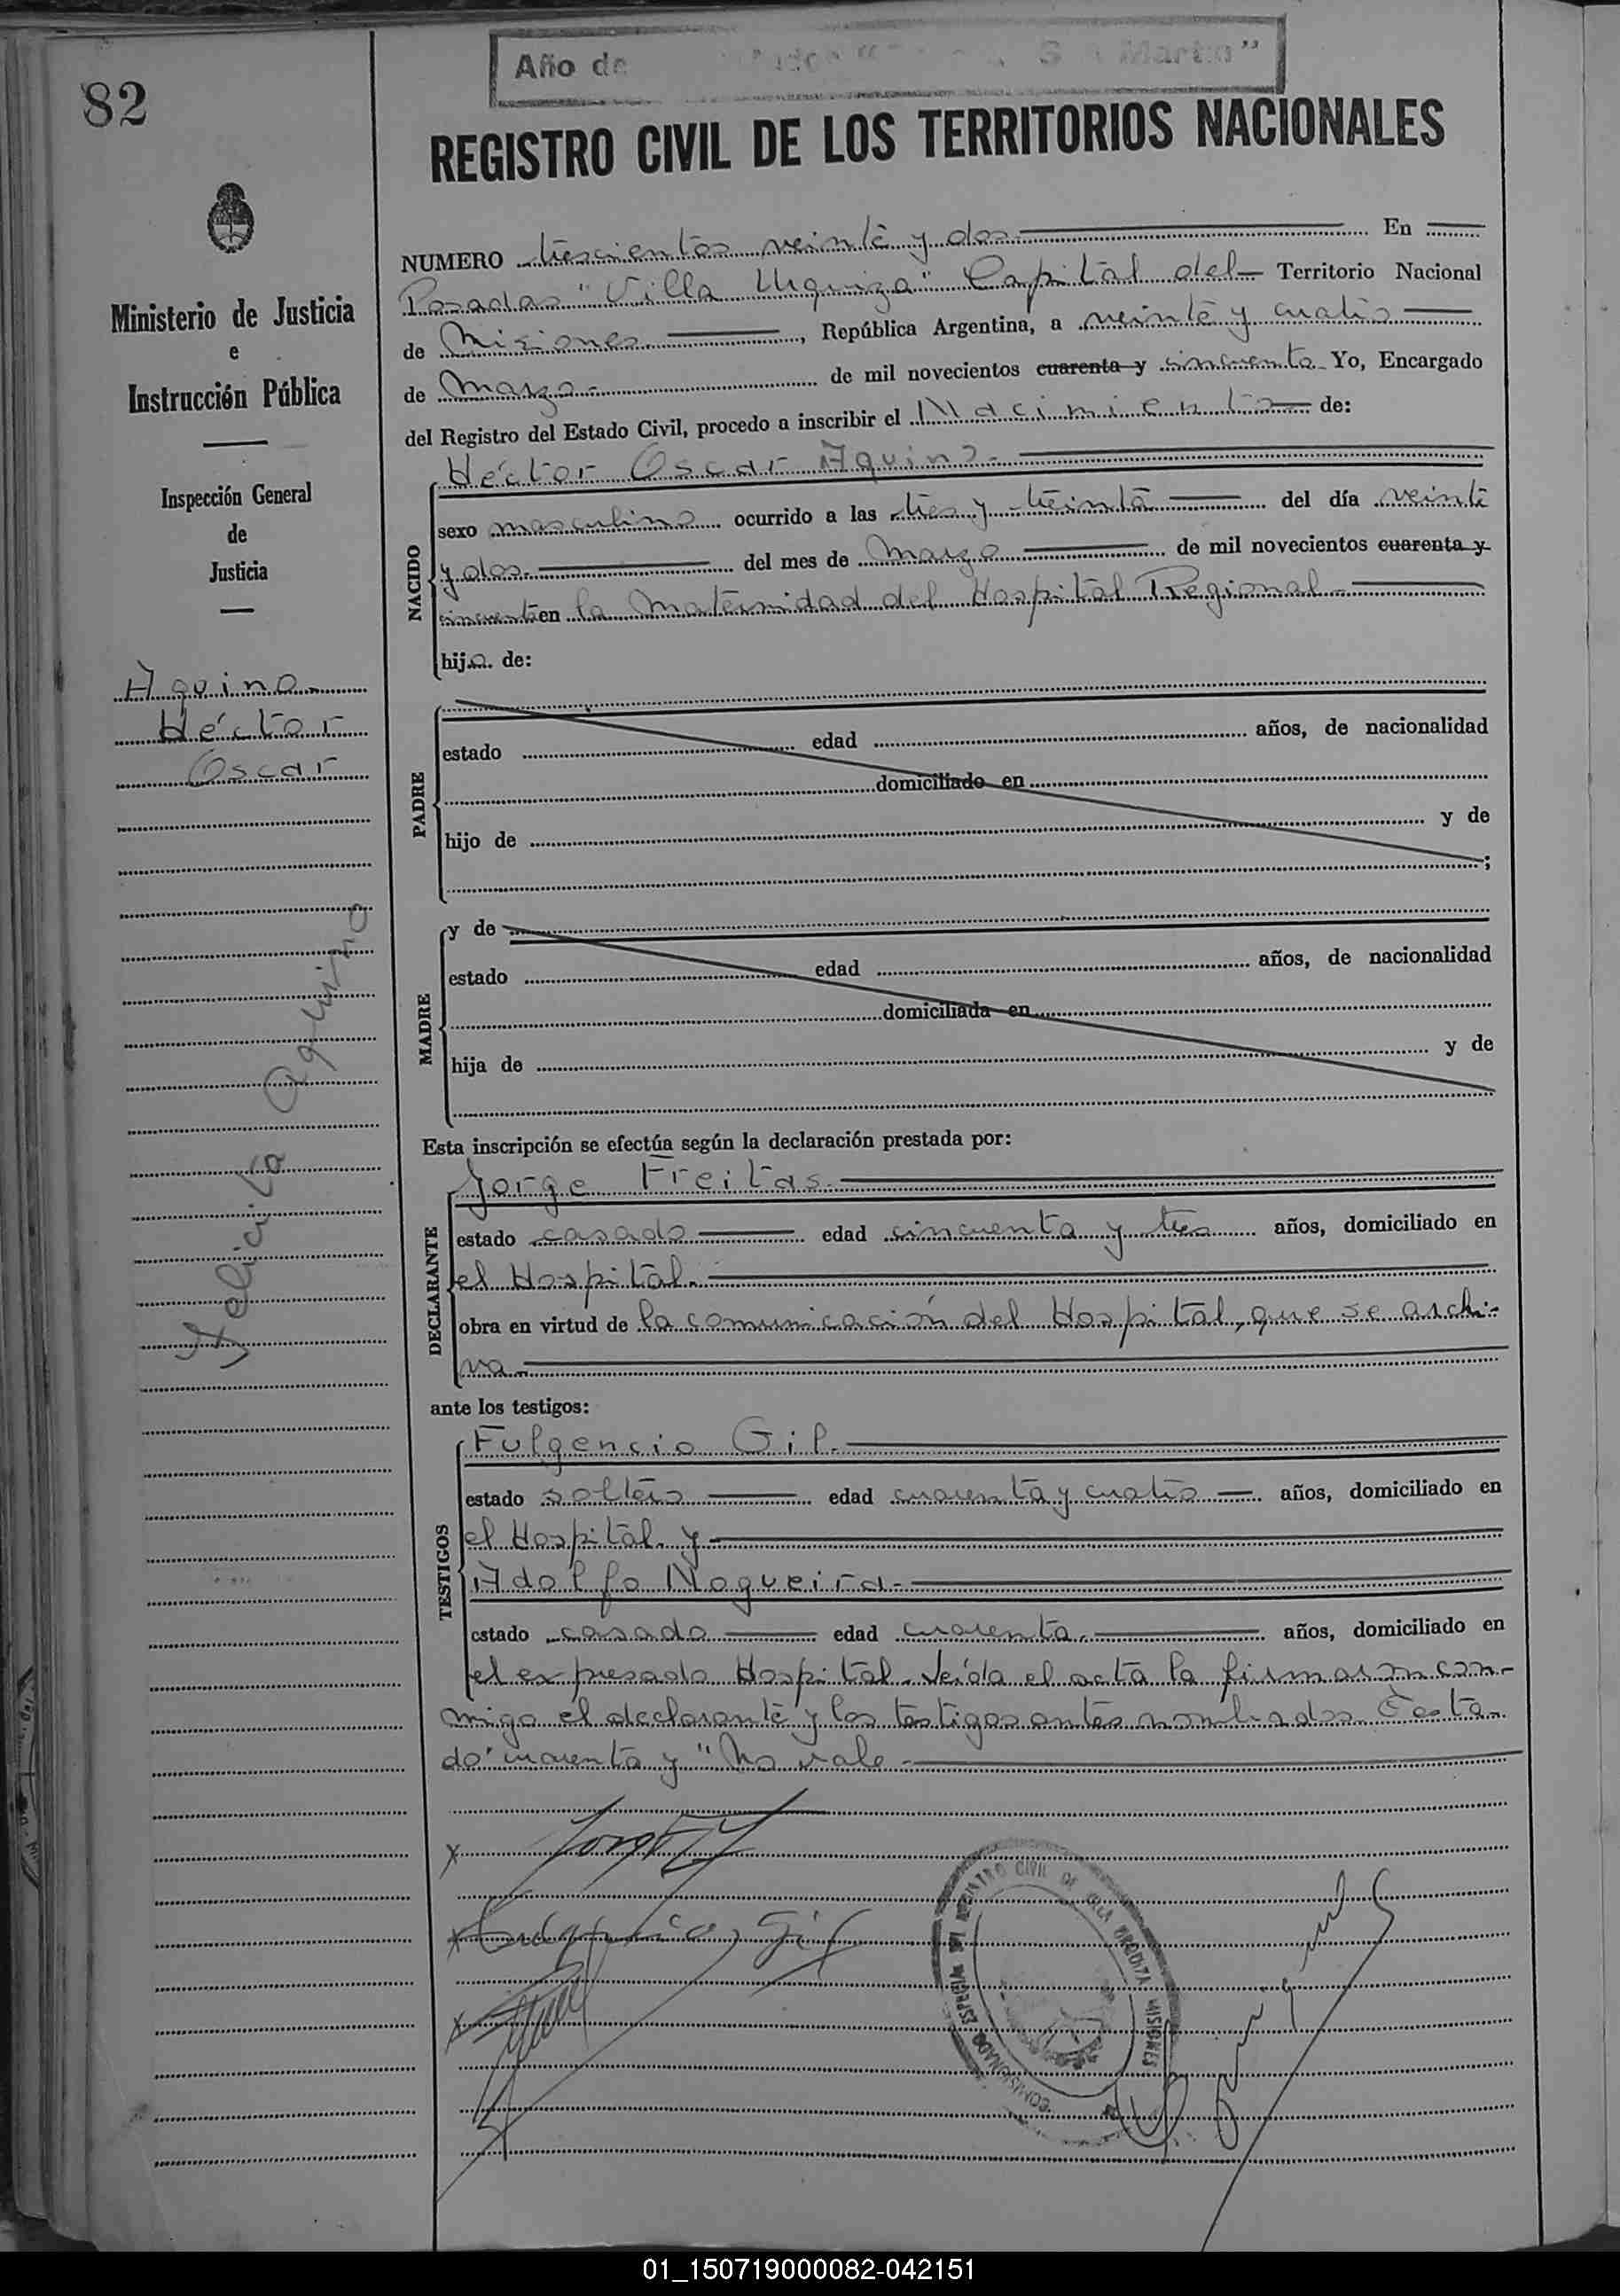 82
Año de
REGISTRO CIVIL DE LOS TERRITORIOS NACIONALES
Ministerio de Justicia
e
Instrucción Pública
Inspección General
de
Justicia
Aquino.
Héctor
Oscar
Felicita Aquino
NUMERO trescientos veinte y dos En
Posadas "Villa Urquiza" Capital del Territorio Nacional
de Misiones. , República Argentina, a veinte y cuatro
de Marzo de mil novecientos cuarenta y cincuenta Yo, Encargado
del Registro del Estado Civil, procedo a inscribir el Nacimiento de:
Héctor Oscar Aquino.
NACIDO
sexo masculino ocurrido a las tres y treinta del día veinte
y dos. del mes de Marzo de mil novecientos cuarenta y
cincuenta en la Maternidad del Hospital Regional.
hijo de:
PADRE
estado edad años, de nacionalidad
domiciliado en
hijo de y de
;
MADRE
y de
estado edad años, de nacionalidad
domiciliada en
hija de y de
Esta inscripción se efectúa según la declaración prestada por:
DECLARANTE
Jorge Freitas.
estado casado edad cincuenta y tres años, domiciliado en
el Hospital.
obra en virtud de la comunicación del Hospital, que se archi-
va
ante los testigos:
TESTIGOS
Fulgencio Gil.
estado soltero edad cuarenta y cuatro años, domiciliado en
el Hospital y
Adolfo Nogueira.
estado casado edad cuarenta. años, domiciliado en
el expresado Hospital. Leída el acta la firmaron con-
migo el declarante y los testigos antes nombrados. Testa-
do "cuarenta y" No vale.
x
x Fulgencio Gil
x
COMISIONADO ESPECIAL REGISTRO CIVIL DE VILLA URQUIZA MISIONES
01_150719000082-042151